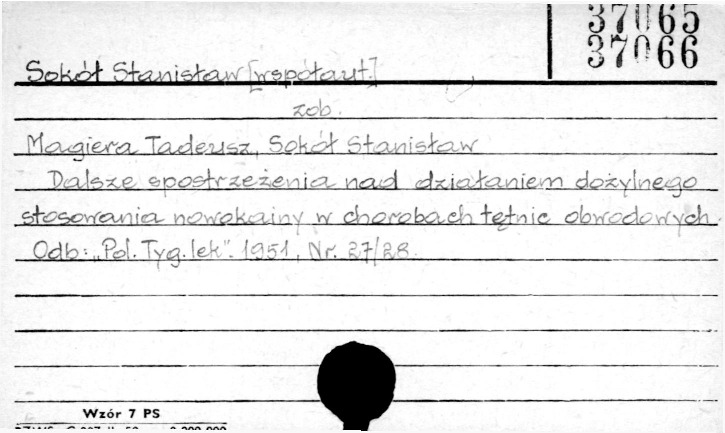 37065
37066
Sokół Stanisław [współaut.]
zob.
Magiera Tadeusz, Sokół Stanisław
Dalsze spostrzeżenia nad działaniem dożylnego
stosowania nowokainy w chorobach tętnic obwodowych.
Odb: „Pol. Tyg. lek". 1951, Nr. 27/28.
Wzór 7 PS